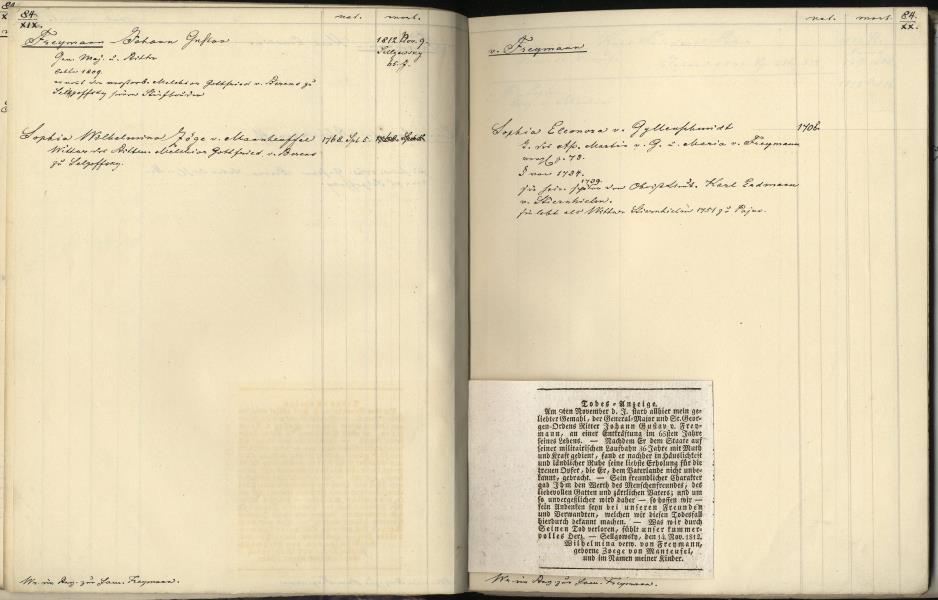 84.
XIX.
nat. mort.
Freymann Johann Gustav 1812 Nov. 9.
Gen. Maj. u. Ritter Sellgowsky
65 J.
1809.
Melchior Gottfried v. Berens zu
Sophia Wilhelmina Zöge v. Manteuffel 1768. Spt 5.
Wittwe des Melchior Gottfried v. Berens
zu
nat. mort. 84.
XX.
v. Freymann
Sophia Eleonora v. Gyllenschmidt 1706.
T. des Ass. Martin v. G. u. Maria v. Freymann
p. 73.
vor 1734.
1729.
Karl Erdmann
v. Stiernhielm.
sie lebt als Wittwe Stiernhielm 1751 zu
Todes-Anzeige.
Am 9ten November d. J. starb allhier mein ge-
liebter Gemahl, der General-Major und St. Geor-
gen-Ordens Ritter Johann Gustav v. Frey-
mann, an einer Entkräftung im 65sten Jahre
seines Lebens. — Nachdem Er dem Staate auf
seiner militairischen Laufbahn 36 Jahre mit Muth
und Kraft gedient, fand er nachher in Häuslichkeit
und ländlicher Ruhe seine liebste Erholung für die
treuen Opfer, die Er, dem Vaterlande nicht unbe-
kannt, gebracht. — Sein freundlicher Charakter
gab Ihm den Werth des Menschenfreundes, des
liebevollen Gatten und zärtlichen Vaters; und um
so unvergeßlicher wird daher — so hoffen wir —
sein Andenken seyn bei unseren Freunden
und Verwandten, welchen wir diesen Todesfall
hierdurch bekannt machen. — Was wir durch
Seinen Tod verloren, fühlt unser kummer-
volles Herz. — Sellgowsky, den 14. Nov. 1812.
Wilhelmina verw. von Freymann,
geborne Zoege von Manteufel,
und im Namen meiner Kinder.
zur Fam. Freymann.
zur Fam. Freymann.